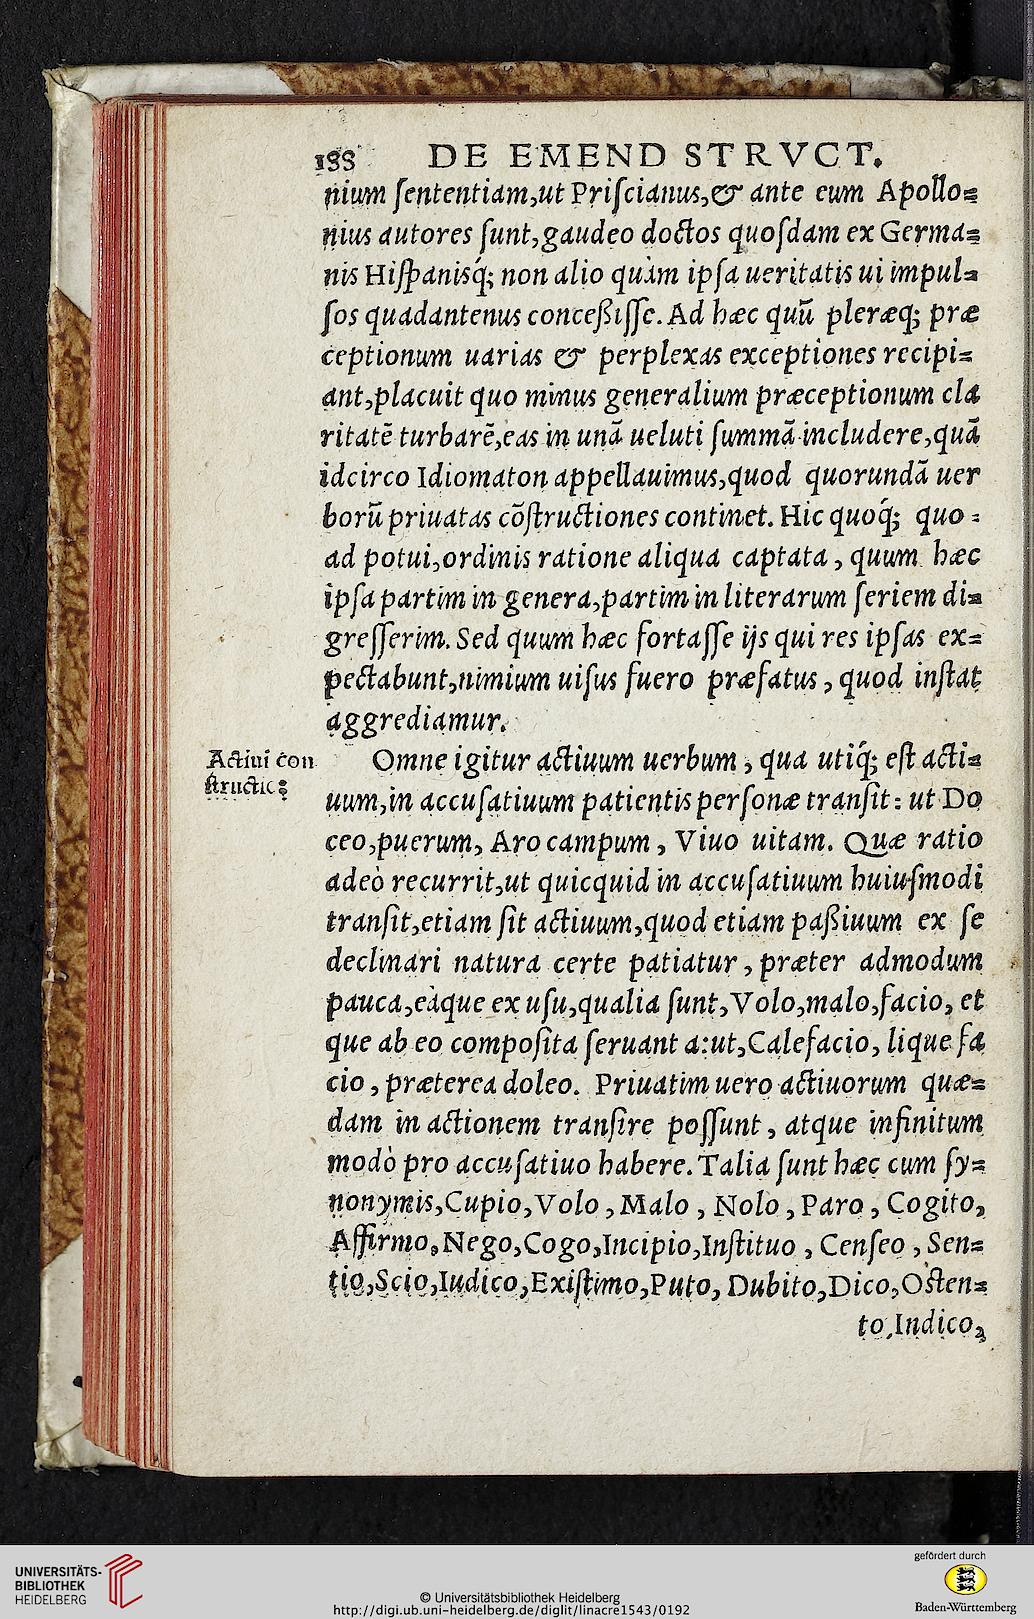 188 DE EMEND STRVCT.
nium ſententiam,ut Priſcianus,& ante eum Apollo=
nius autores ſunt,gaudeo doctos quoſdam ex Germa=
nis Hiſpanisq́; non alio quàm ipſa ueritatis ui impul=
ſos quadantenus conceßiſſe. Ad hæc quũ pleræq; præ
ceptionum uarias & perplexas exceptiones recipi=
ant,placuit quo minus generalium præceptionum cla
ritatẽ turbarẽ,eas in unã ueluti ſummã includere,quã
idcirco Idiomaton appellauimus,quod quorundã uer
borũ priuatas cõſtructiones continet. Hic quoq́; quo=
ad potui,ordinis ratione aliqua captata, quum hæc
ipſa partim in genera,partim in literarum ſeriem di=
greſſerim. Sed quum hæc fortaſſe ijs qui res ipſas ex=
pectabunt,nimium uiſus fuero præfatus, quod inſtat
aggrediamur.
Actiui con
ſtructio
Omne igitur actiuum uerbum, qua utiq́; eſt acti=
uum,in accuſatiuum patientis perſonæ tranſit: ut Do
ceo,puerum, Aro campum, Viuo uitam. Quæ ratio
adeò recurrit,ut quicquid in accuſatiuum huiuſmodi
tranſit,etiam ſit actiuum,quod etiam paßiuum ex ſe
declinari natura certe patiatur, præter admodum
pauca,eàque ex uſu,qualia ſunt,Volo,malo,facio, et
que ab eo compoſita ſeruant a:ut,Calefacio, lique fa
cio, præterea doleo. Priuatim uero actiuorum quæ=
dam in actionem tranſire poſſunt, atque infinitum
modò pro accuſatiuo habere. Talia ſunt hæc cum ſy=
nonymis,Cupio,Volo, Malo, Nolo, Paro, Cogito,
Affirmo,Nego,Cogo,Incipio,Inſtituo, Cenſeo, Sen=
tio,Scio,Iudico,Exiſtimo,Puto, Dubito,Dico,Oſten=
to,Indico,
UNIVERSITÄTS-
BIBLIOTHEK
HEIDELBERG
© Universitätsbibliothek Heidelberg
http://digi.ub.uni-heidelberg.de/diglit/linacre1543/0192
gefördert durch
Baden-Württemberg